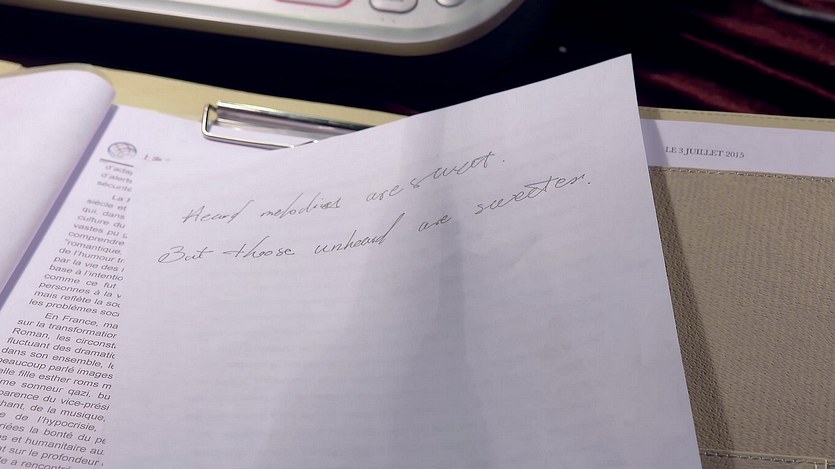 Heard melodies are sweet.
But those unheard are sweeter.
LE 3 JUILLET 2015
siècle et
qui, dans
culture du
vastes pu
comprendre
"romantique,
de l'humour
par la vie des
base à l'intentio
comme ce fut
personnes à la v
mais reflète la soc
les problèmes soc
En France, ma
sur la transformation
Roman, les circonst
fluctuant des dramati
dans son ensemble, le
beaucoup parlé images
elle fille esther roms m
me sonneur qazi, bu
parence du vice-prési
chant, de la musique,
e de l'hypocrisie,
riées la bonté du pe
s et humanitaire au
at sur le profondeur
le a rencontré